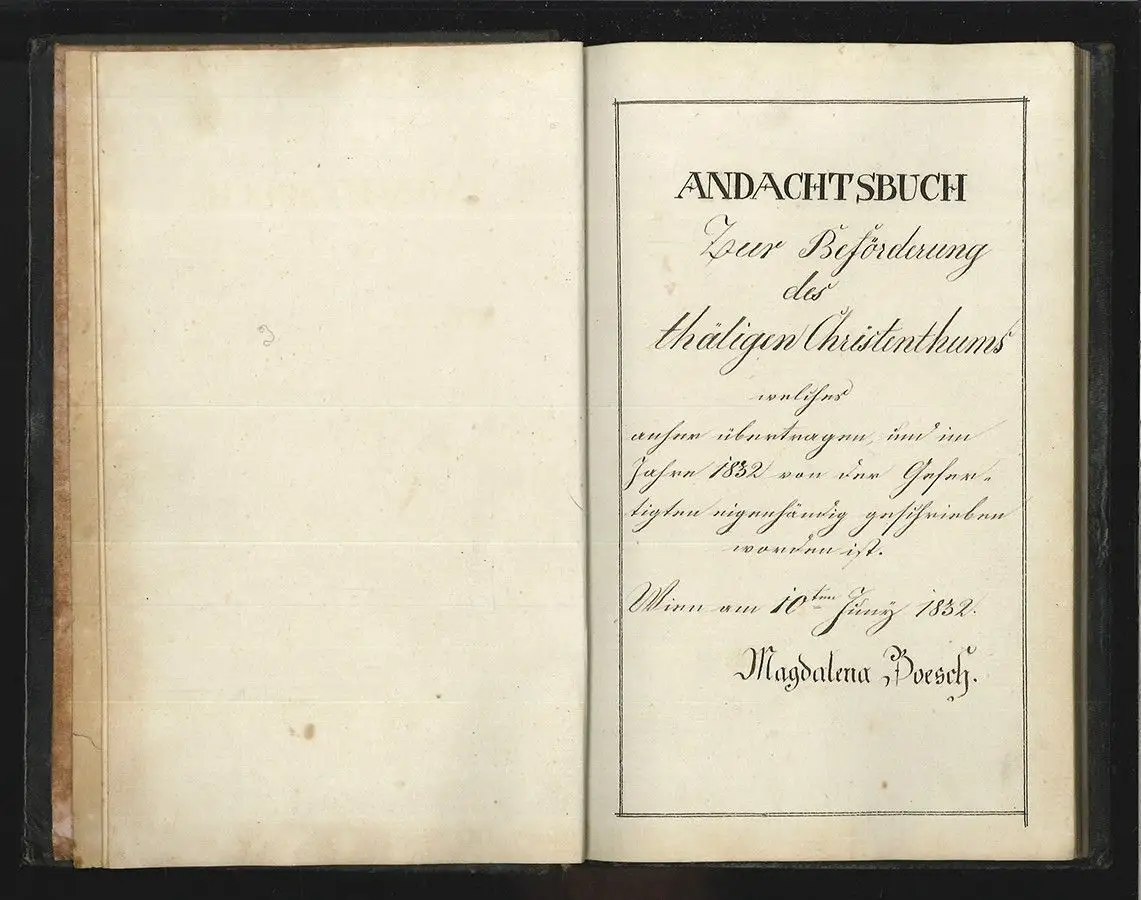 ANDACHTSBUCH
Zur Beförderung
des
thätigen Christenthums
welches
anher übertragen, und im
Jahre 1832 von der Gefer-
tigten eigenhändig geschrieben
worden ist.
Wien am 10ten Juny 1832.
Magdalena Poesch.